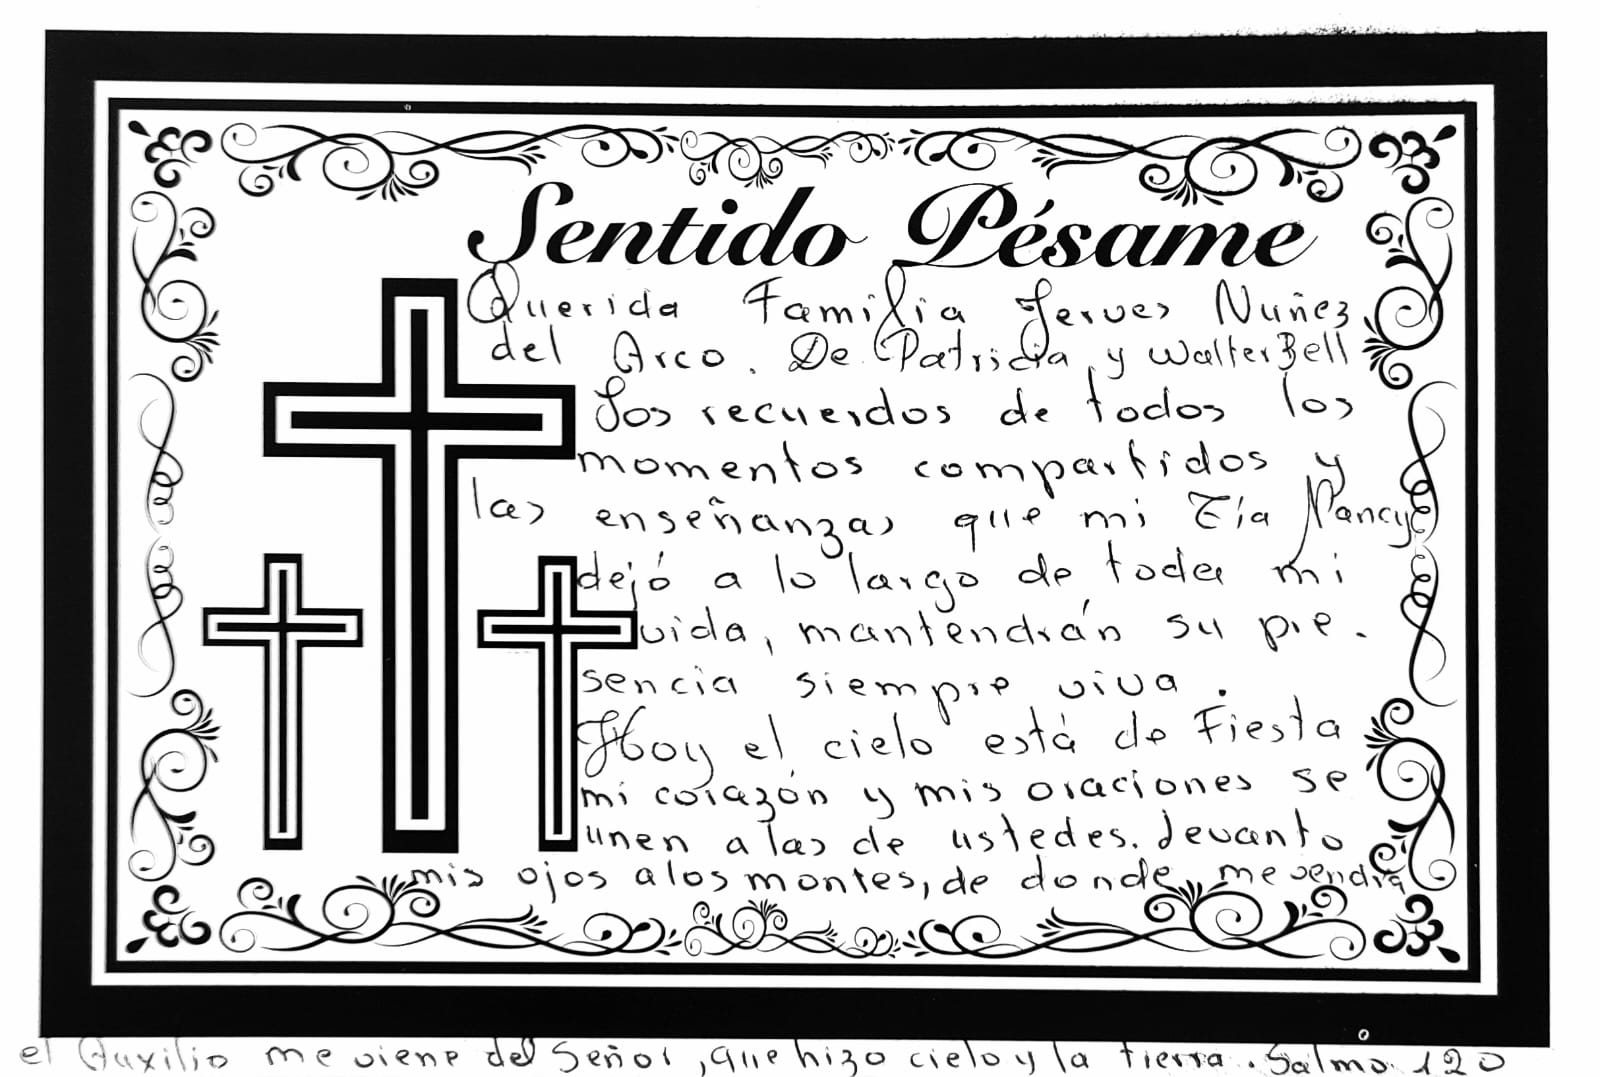 Sentido Pésame
Querida Familia Jerves Nuñez
del Arco. De Patricia y Walter Bell
Los recuerdos de todos los
momentos compartidos y
las enseñanzas que mi Tía Nancy
dejó a lo largo de toda mi
vida, mantendrán su pre-
sencia siempre viva.
Hoy el cielo está de Fiesta
mi corazón y mis oraciones se
unen a las de ustedes. Levanto
mis ojos a los montes, de donde me vendrá
el Auxilio me viene del Señor, que hizo cielo y la tierra. Salmo 120